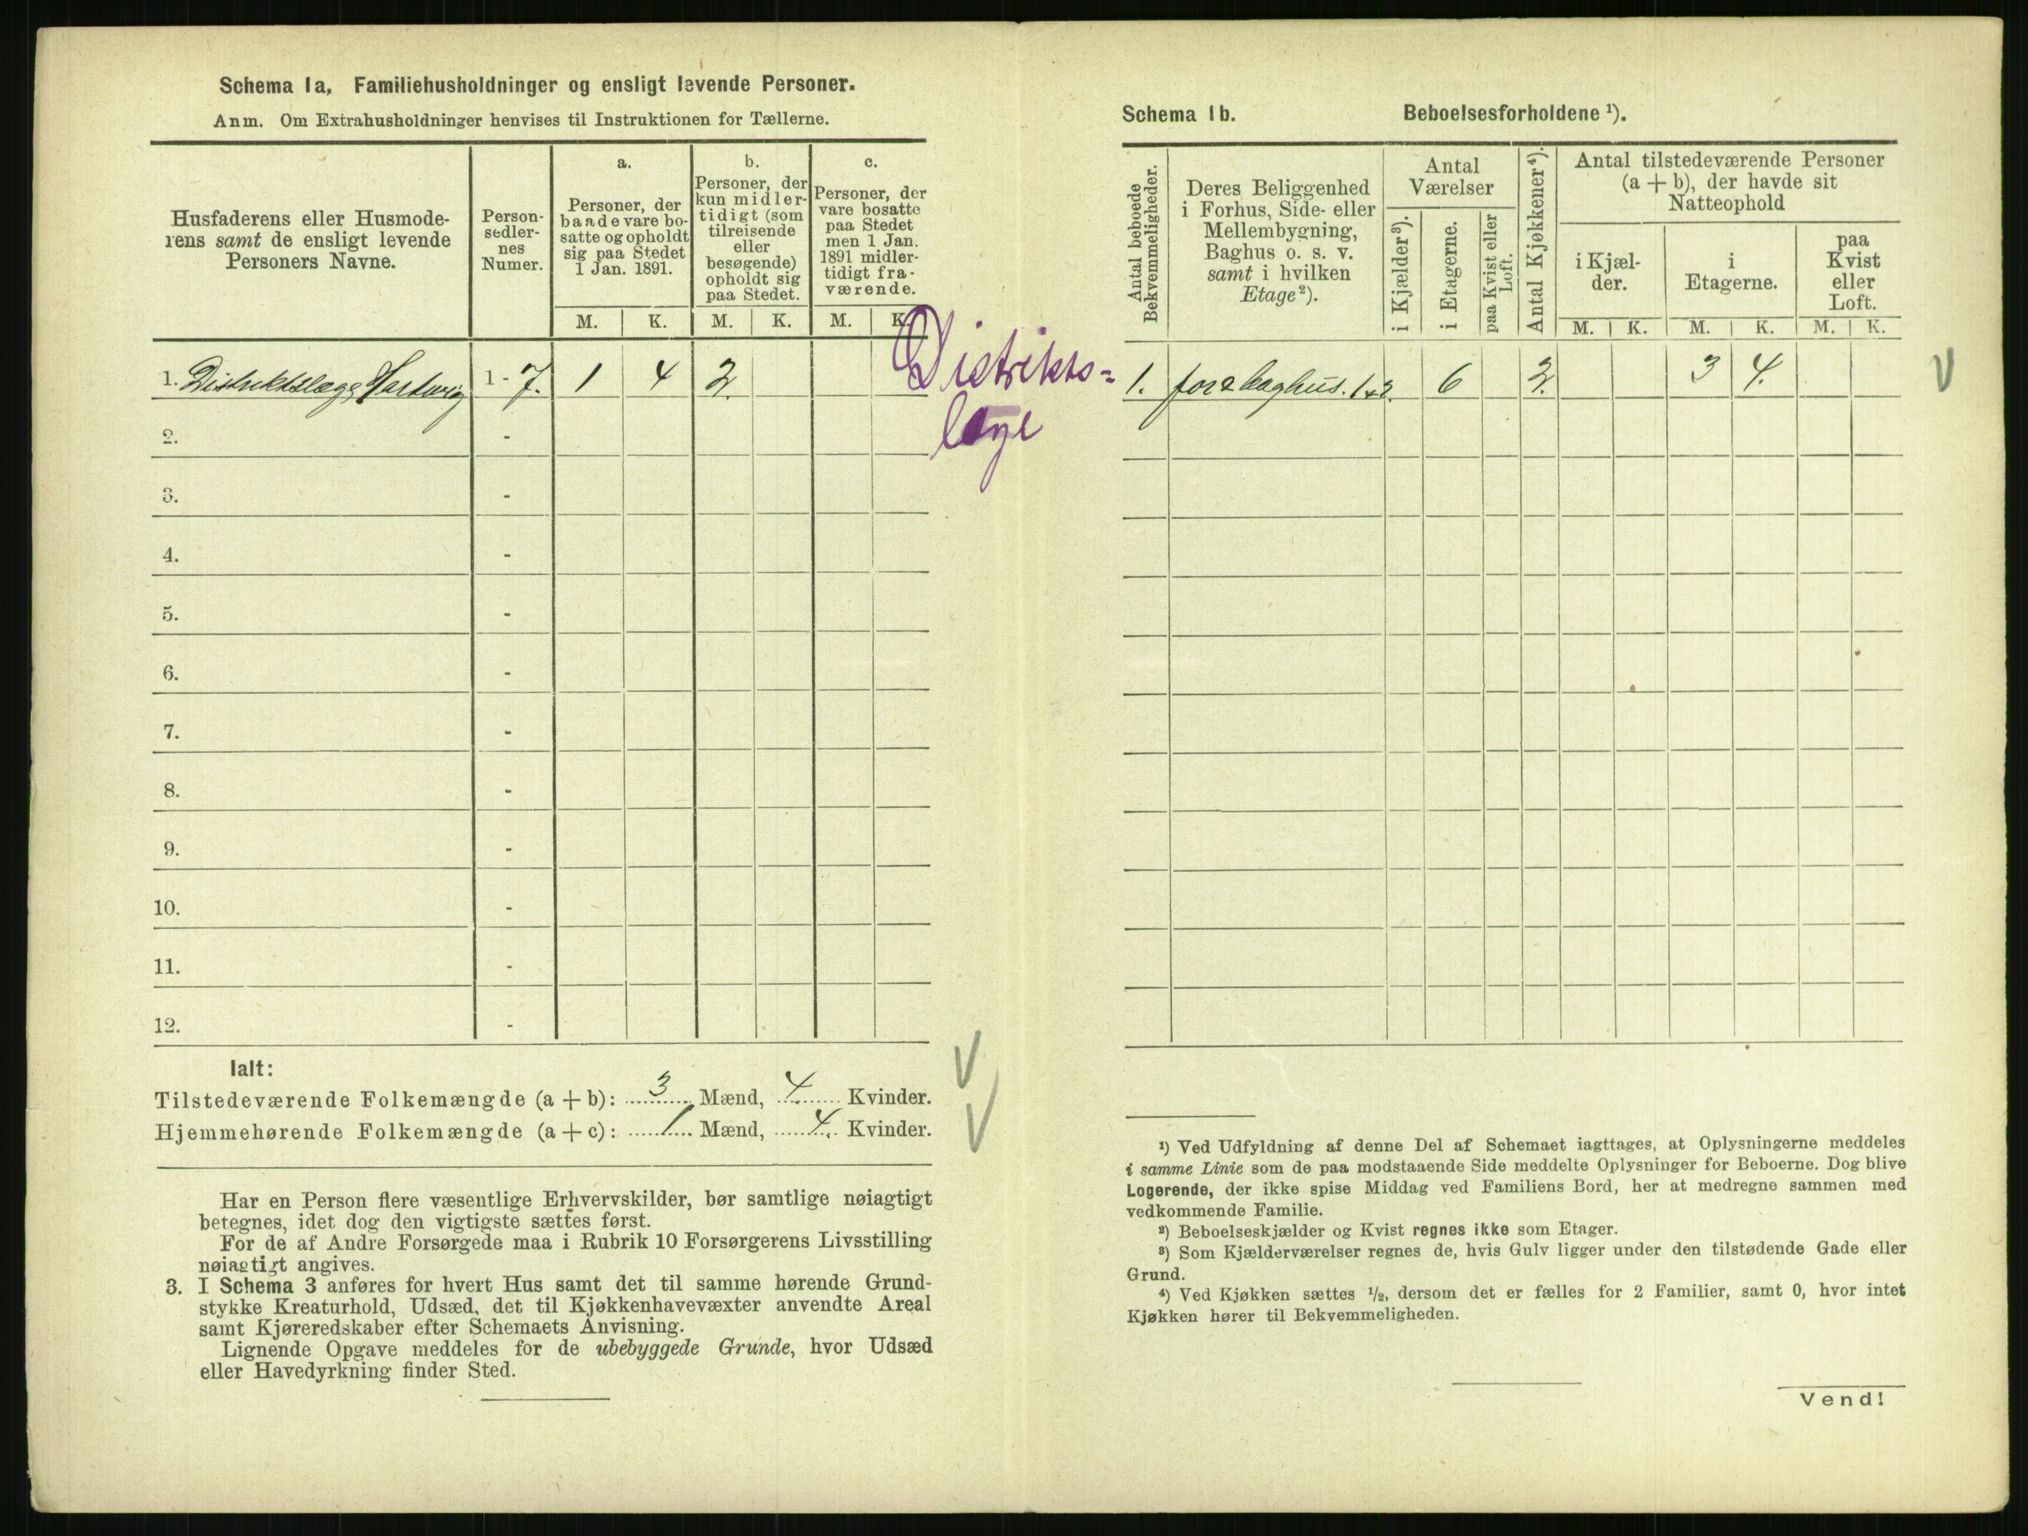 Schema 1a, Familiehusholdninger og ensligt levende Personer.
Anm. Om Extrahusholdninger henvises til Instruktionen for Tællerne.
Husfaderens eller Husmode-
rens samt de ensligt levende
Personers Navne.
Person-
sedler-
nes
Numer.
a.
Personer, der
baade vare bo-
satte og opholdt
sig paa Stedet
1 Jan. 1891.
M. K.
b.
Personer, der
kun midler-
tidigt (som
tilreisende
eller
besøgende)
opholdt sig
paa Stedet.
M. K.
c.
Personer, der
vare bosatte
paa Stedet
men 1 Jan.
1891 midler-
tidigt fra-
værende.
M. K.
1. Distriktslæge Hartwig 1 - 7. 1 4 2.
Distrikts=
læge
2. -
3. -
4. -
5. -
6. -
7. -
8. -
9. -
10. -
11. -
12. -
Ialt:
Tilstedeværende Folkemængde (a + b): 3 Mænd, 4 Kvinder.
Hjemmehørende Folkemængde (a + c): 1 Mænd, 4 Kvinder.
Har en Person flere væsentlige Erhvervskilder, bør samtlige nøiagtigt
betegnes, idet dog den vigtigste sættes først.
For de af Andre Forsørgede maa i Rubrik 10 Forsørgerens Livsstilling
nøiagtigt angives.
3. I Schema 3 anføres for hvert Hus samt det til samme hørende Grund-
stykke Kreaturhold, Udsæd, det til Kjøkkenhavevæxter anvendte Areal
samt Kjøreredskaber efter Schemaets Anvisning.
Lignende Opgave meddeles for de ubebyggede Grunde, hvor Udsæd
eller Havedyrkning finder Sted.
Schema 1b. Beboelsesforholdene ¹).
Antal beboede
Bekvemmeligheder.
Deres Beliggenhed
i Forhus, Side- eller
Mellembygning,
Baghus o. s. v.
samt i hvilken
Etage²).
Antal
Værelser
i Kjælder³).
i Etagerne.
paa Kvist eller
Loft.
Antal Kjøkkener⁴).
Antal tilstedeværende Personer
(a + b), der havde sit
Natteophold
i Kjæl-
der.
M. K.
i
Etagerne.
M. K.
paa
Kvist
eller
Loft.
M. K.
1. for & baghus. 1+2. 6 2. 3 4.
¹) Ved Udfyldning af denne Del af Schemaet iagttages, at Oplysningerne meddeles
i samme Linie som de paa modstaaende Side meddelte Oplysninger for Beboerne. Dog blive
Logerende, der ikke spise Middag ved Familiens Bord, her at medregne sammen med
vedkommende Familie.
²) Beboelseskjælder og Kvist regnes ikke som Etager.
³) Som Kjælderværelser regnes de, hvis Gulv ligger under den tilstødende Gade eller
Grund.
⁴) Ved Kjøkken sættes ½, dersom det er fælles for 2 Familier, samt 0, hvor intet
Kjøkken hører til Bekvemmeligheden.
Vend!